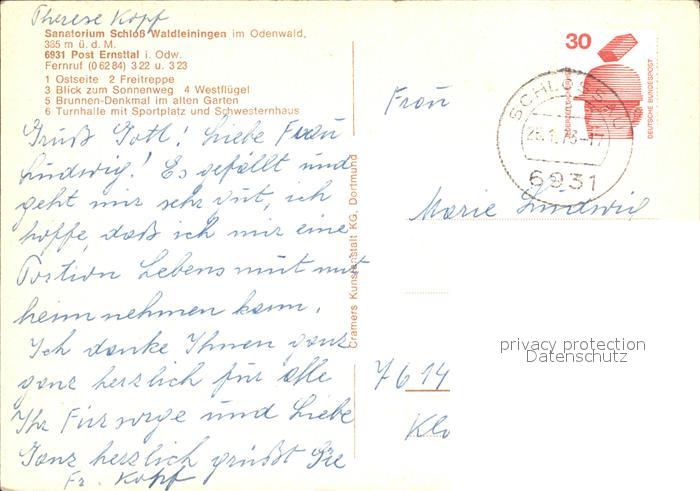 Therese Kopf
Sanatorium Schloß Waldleiningen im Odenwald,
385 m ü. d. M.
6931 Post Ernsttal i. Odw.
Fernruf (0 62 84) 3 22 u. 3 23
1 Ostseite 2 Freitreppe
3 Blick zum Sonnenweg 4 Westflügel
5 Brunnen-Denkmal im alten Garten
6 Turnhalle mit Sportplatz und Schwesternhaus
Grüß Gott! Liebe Frau
Ludwig! Es gefällt und
geht mir sehr gut, ich
hoffe, daß ich mir eine
Portion Lebensmut mit
heim nehmen kann.
Ich danke Ihnen ganz
ganz herzlich für alle
Ihr Fürsorge und Liebe
Ganz herzlich grüßt Sie
Fr. Kopf
Cramers Kunstanstalt KG, Dortmund
30
DEUTSCHE BUNDESPOST
SCHLOSSAU
6931
Frau
Marie Ludwig
privacy protection
Datenschutz
7614